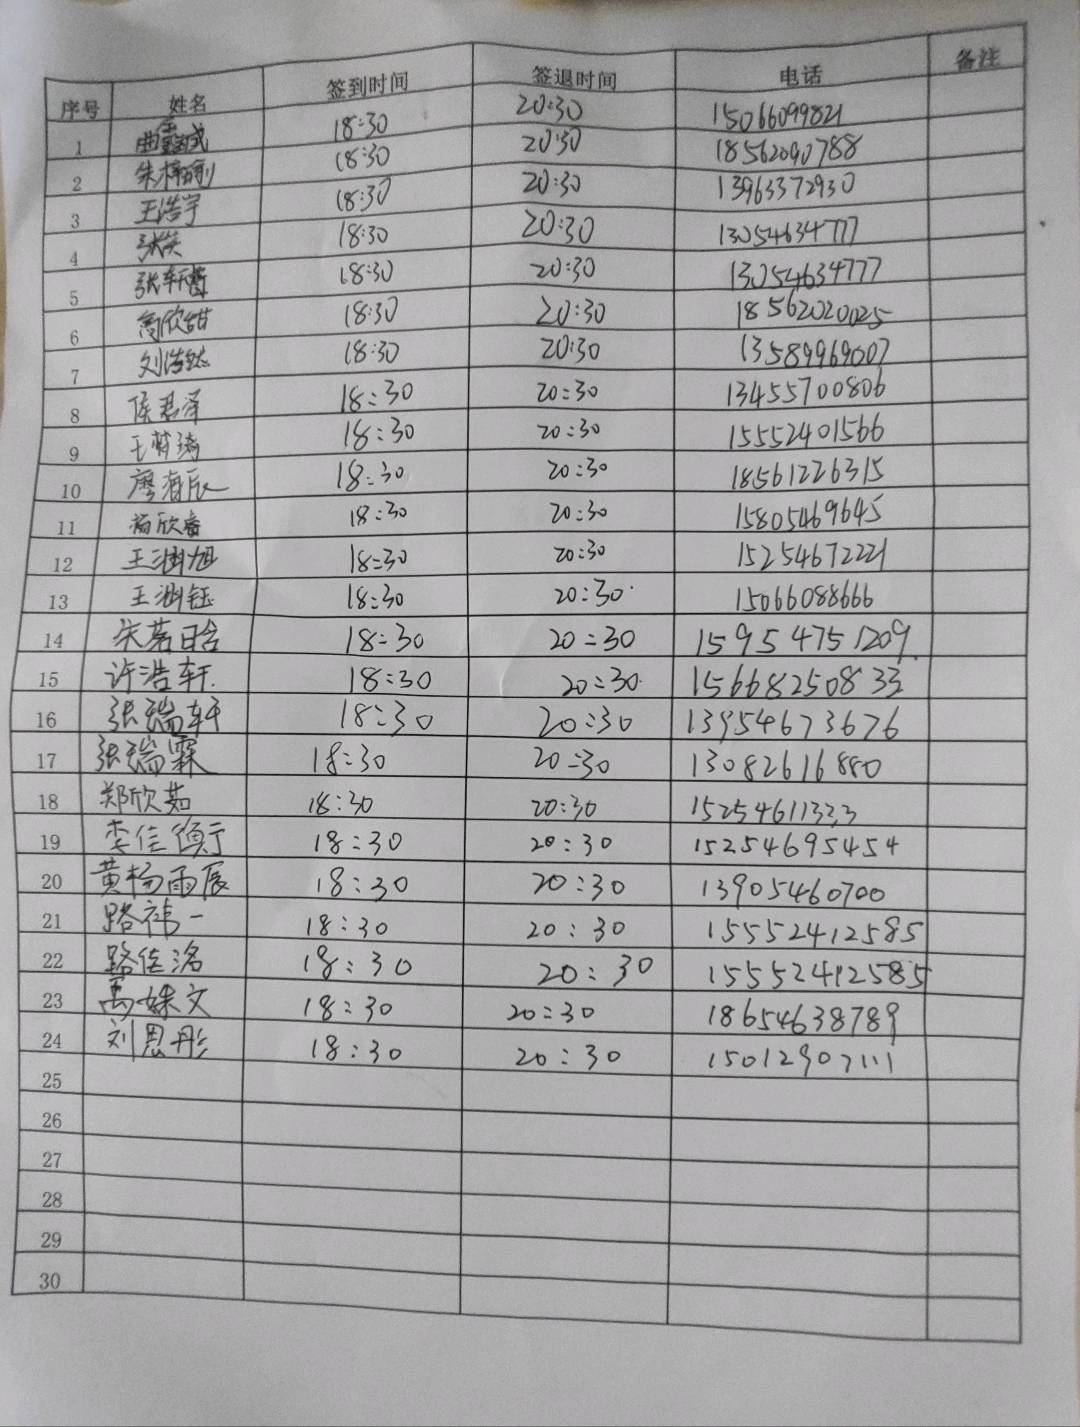 序号 姓名 签到时间 签退时间 电话 备注
1 曲鑫成 18:30 20:30 15066099821
2 朱梓 18:30 20:30 18562090788
3 王浩宇 18:30 20:30 13963372930
4 张 18:30 20:30 13054634777
5 张轩 18:30 20:30 13054634777
6 高欣甜 18:30 20:30 18562020025
7 刘浩然 18:30 20:30 13589969007
8 侯君泽 18:30 20:30 13455700806
9 王梦琦 18:30 20:30 15552401566
10 廖海辰 18:30 20:30 18561226315
11 杨欣睿 18:30 20:30 15805469645
12 王涵旭 18:30 20:30 15254672221
13 王涵钰 18:30 20:30 15066088666
14 茗晗 18:30 20:30 15954751209
15 许浩轩 18:30 20:30 15668250833
16 张瑞轩 18:30 20:30 13954673676
17 张瑞霖 18:30 20:30 13082616880
18 郑欣茹 18:30 20:30 15254611333
19 李佳 18:30 20:30 15254695454
20 黄杨雨辰 18:30 20:30 13905460700
21 路祎一 18:30 20:30 15552412585
22 路佳洺 18:30 20:30 15552412585
23 高姝文 18:30 20:30 18654638789
24 刘恩彤 18:30 20:30 15012907111
25
26
27
28
29
30